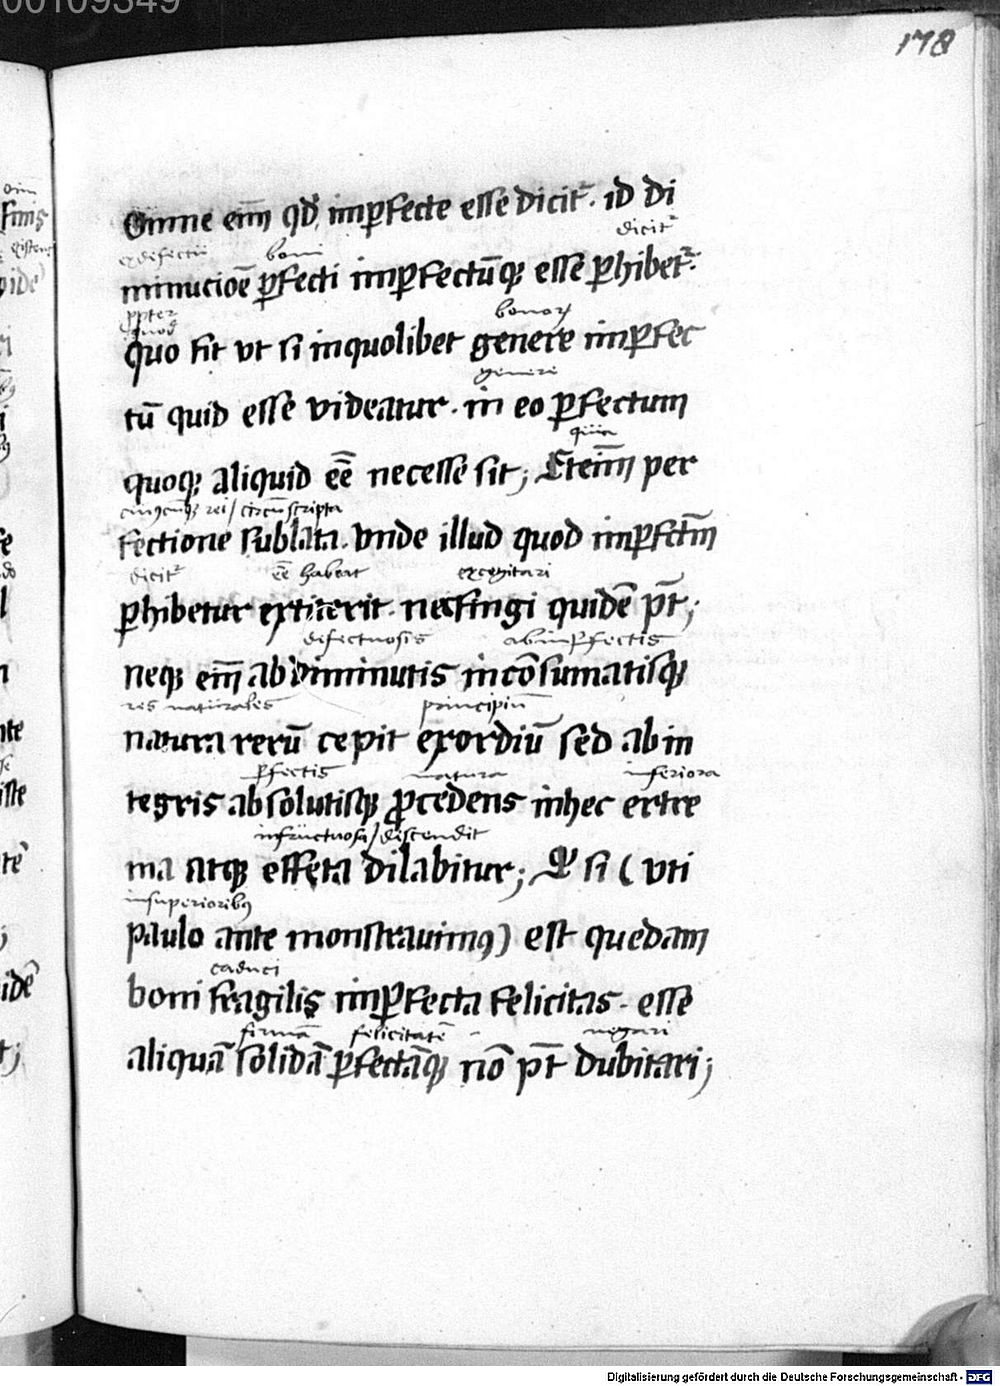 00109349
178
Omne em̄ qd̄ imꝑfecte esse dicit᷑. id di
dicit᷑
ex defectu boni
minucioē ꝑfecti imꝑfectūqꝫ esse ꝑhibet᷑.
ꝓpter quod bonoꝝ
quo fit vt si inquolibet genere imꝑfec
genere
tū quid esse videatur. in eo ꝑfectum
quia
quoqꝫ aliquid eē necesse sit; Eteim̄ per
cuiꝯcūqꝫ rei / circūscripta
fectione sublata. vnde illud quod imꝑfctm̄
dicit᷑ eē habeat excogitari
ꝑhibetur extiterit. nec fingi quidē pt̄;
defectuosis ab imꝑfectis
neqꝫ em̄ ab diminutis incōsumatisqꝫ
res naturales principiū
natura rerū cepit exordiū sed ab in
ꝑfectis natura inferiora
tegris absolutisqꝫ ꝓcedens in hec extre
infructuosa / discendit
ma atqꝫ effeta dilabitur; Qꝫ si ( vti
in superioribꝰ
paulo ante monstrauimꝰ ) est quedam
caduci
boni fragilis imꝑfecta felicitas. esse
firmā felicitatē negari
aliquā solidā ꝑfectāqꝫ nō pt̄ dubitari;
Digitalisierung gefördert durch die Deutsche Forschungsgemeinschaft - DFG